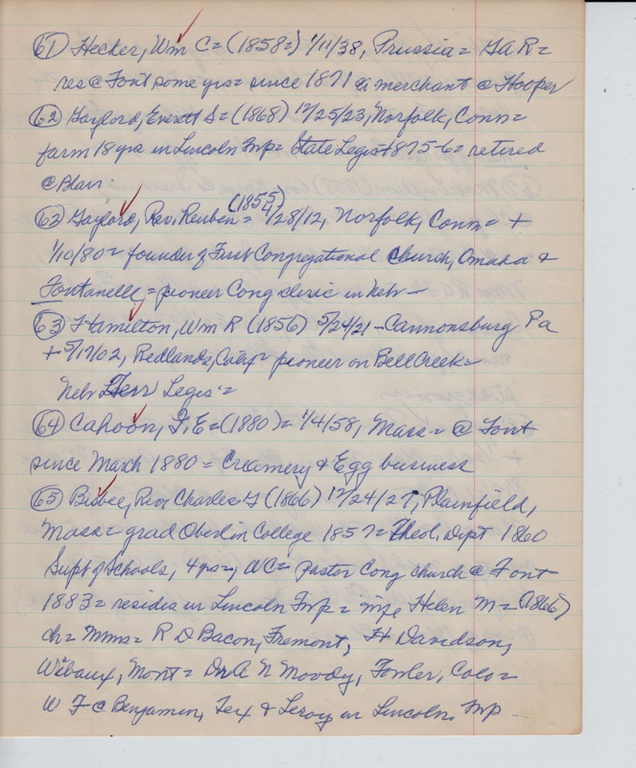 61) Hecker, Wm C = (1858=) 1/11/38, Prussia = GAR =
res @ Font some yrs = since 1871 a merchant @ Hooper
62) Gaylord, Everett S = (1868) 12/25/23, Norfolk, Conn =
farm 18 yrs in Lincoln Twp = State Legis + 1875-6 = retired
@ Blair
(1855)
63) Gaylord, Rev. Reuben = 4/28/12, Norfolk, Conn = +
1/10/80 = founder of First Congregational Church, Omaha &
Fontanelle = pioneer Cong cleric in Neb -
63) Hamilton, Wm R (1856) 5/24/21 - Cannonsburg Pa
+ 5/17/02, Redlands, Calif = pioneer on Bell Creek =
Neb Terr Legis =
64) Cahoon, F. E = (1880) = 1/4/58, Mass = @ Font
since March 1880 = Creamery & Egg business
65) Bisbee, Rev Charles G (1866) 12/24/27, Plainfield,
Mass = grad Oberlin College 1857 = Theol. Dept 1860
Supt of Schools, 4 yrs =, WC = pastor Cong church @ Font
1883 = resides in Lincoln Twp = Helen M = (1866)
ch = Mms = R D Bacon, Fremont, Davidson,
Wibaux, Mont = Dr A N Moody, Fowler, Colo =
W F C Benjamin, Tex & Leroy in Lincoln Twp